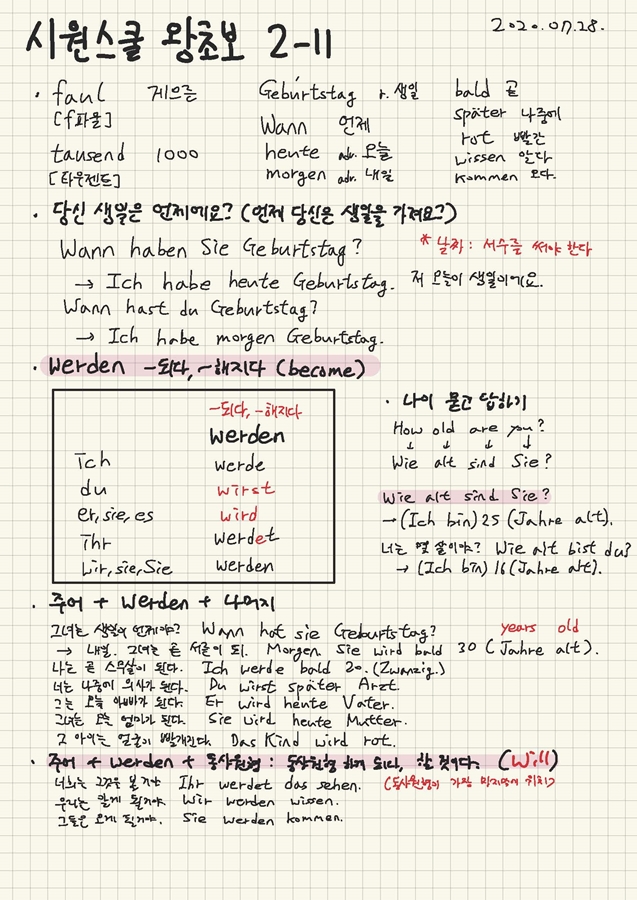 시원스쿨 왕초보 2-11
2020.07.28.
· faul 게으른
[f파울]
tausend 1000
[타우젠트]
Geburtstag r. 생일
Wann 언제
heute adv. 오늘
morgen adv. 내일
bald 곧
später 나중에
rot 빨간
wissen 알다
kommen 오다.
· 당신 생일은 언제예요? (언제 당신은 생일을 가져요?)
Wann haben Sie Geburtstag?
* 날짜 : 서수를 써야 한다
→ Ich habe heute Geburtstag. 저 오늘이 생일이에요.
Wann hast du Geburtstag?
→ Ich habe morgen Geburtstag.
· werden ~되다, ~해지다 (become)
~되다, ~해지다
werden
Ich werde
du wirst
er, sie, es wird
Ihr werdet
wir, sie, Sie werden
· 나이 묻고 답하기
How old are you?
↓ ↓ ↓ ↓
Wie alt sind Sie?
Wie alt sind Sie?
→ (Ich bin) 25 (Jahre alt).
너는 몇 살이야? Wie alt bist du?
→ (Ich bin) 16 (Jahre alt).
· 주어 + werden + 나머지
그녀는 생일이 언제야? Wann hat sie Geburtstag?
years old
→ 내일. 그녀는 곧 서른이 돼. Morgen. Sie wird bald 30 (Jahre alt).
나는 곧 스무살이 된다. Ich werde bald 20. (Zwanzig.)
너는 나중에 의사가 된다. Du wirst später Arzt.
그는 오늘 아빠가 된다. Er wird heute Vater.
그녀는 오늘 엄마가 된다. Sie wird heute Mutter.
그 아이는 얼굴이 빨개진다. Das Kind wird rot.
· 주어 + werden + 동사원형 : 동사원형 하게 되다, 할 것이다. (Will)
너희는 그것을 볼거야 Ihr werdet das sehen. (동사원형이 가장 마지막에 위치)
우리는 알게 될거야. Wir werden wissen.
그들은 오게 될거야. Sie werden kommen.